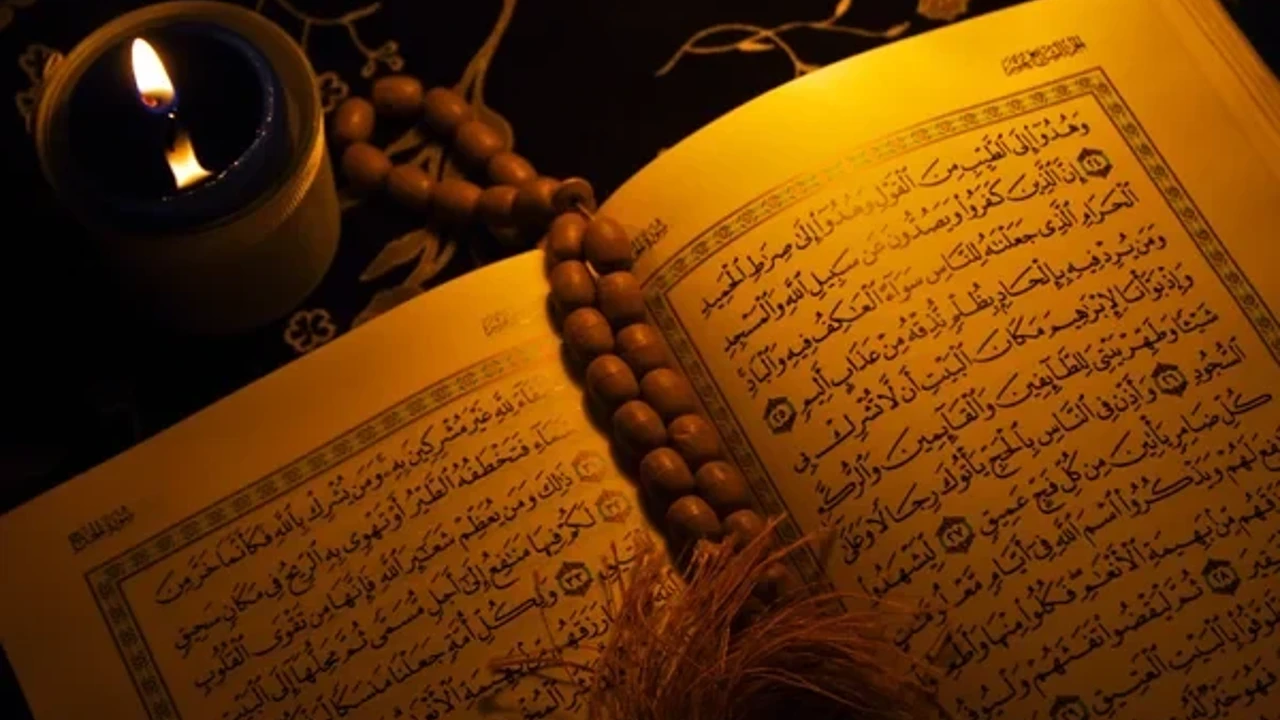 وَهُدُوٓا۟ إِلَى ٱلطَّيِّبِ مِنَ ٱلْقَوْلِ وَهُدُوٓا۟ إِلَىٰ صِرَٰطِ ٱلْحَمِيدِ
٢٤ إِنَّ ٱلَّذِينَ كَفَرُوا۟ وَيَصُدُّونَ عَن سَبِيلِ ٱللَّهِ وَٱلْمَسْجِدِ
ٱلْحَرَامِ ٱلَّذِى جَعَلْنَٰهُ لِلنَّاسِ سَوَآءً ٱلْعَٰكِفُ فِيهِ وَٱلْبَادِ
وَمَن يُرِدْ فِيهِ بِإِلْحَادٍۭ بِظُلْمٍ نُّذِقْهُ مِنْ عَذَابٍ أَلِيمٍ ٢٥
وَإِذْ بَوَّأْنَا لِإِبْرَٰهِيمَ مَكَانَ ٱلْبَيْتِ أَن لَّا تُشْرِكْ بِى
شَيْـًٔا وَطَهِّرْ بَيْتِىَ لِلطَّآئِفِينَ وَٱلْقَآئِمِينَ وَٱلرُّكَّعِ
ٱلسُّجُودِ ٢٦ وَأَذِّن فِى ٱلنَّاسِ بِٱلْحَجِّ يَأْتُوكَ رِجَالًا وَعَلَىٰ
كُلِّ ضَامِرٍ يَأْتِينَ مِن كُلِّ فَجٍّ عَمِيقٍ ٢٧ لِّيَشْهَدُوا۟
لَهُمْ وَيَذْكُرُوا۟ ٱسْمَ ٱللَّهِ فِىٓ أَيَّامٍ
مِّنۢ بَهِيمَةِ ٱلْأَنْعَٰمِ فَكُلُوا۟ مِنْهَا
٢٨ ثُمَّ لْيَقْضُوا۟ تَفَثَهُمْ
بِٱلْبَيْتِ ٱلْعَتِيقِ
فَهُوَ خَيْرٌ
لِلَّهِ غَيْرَ مُشْرِكِينَ بِهِۦ وَمَن يُشْرِكْ بِٱللَّهِ فَكَأَنَّمَا خَرَّ مِنَ
ٱلسَّمَآءِ فَتَخْطَفُهُ ٱلطَّيْرُ أَوْ تَهْوِى بِهِ ٱلرِّيحُ فِى مَكَانٍ سَحِيقٍ
٣١ ذَٰلِكَ وَمَن يُعَظِّمْ شَعَٰٓئِرَ ٱللَّهِ فَإِنَّهَا مِن تَقْوَى ٱلْقُلُوبِ
٣٢ لَكُمْ فِيهَا مَنَٰفِعُ إِلَىٰٓ أَجَلٍ مُّسَمًّى ثُمَّ مَحِلُّهَآ إِلَى ٱلْبَيْتِ
٣٣ وَلِكُلِّ أُمَّةٍ جَعَلْنَا مَنسَكًا